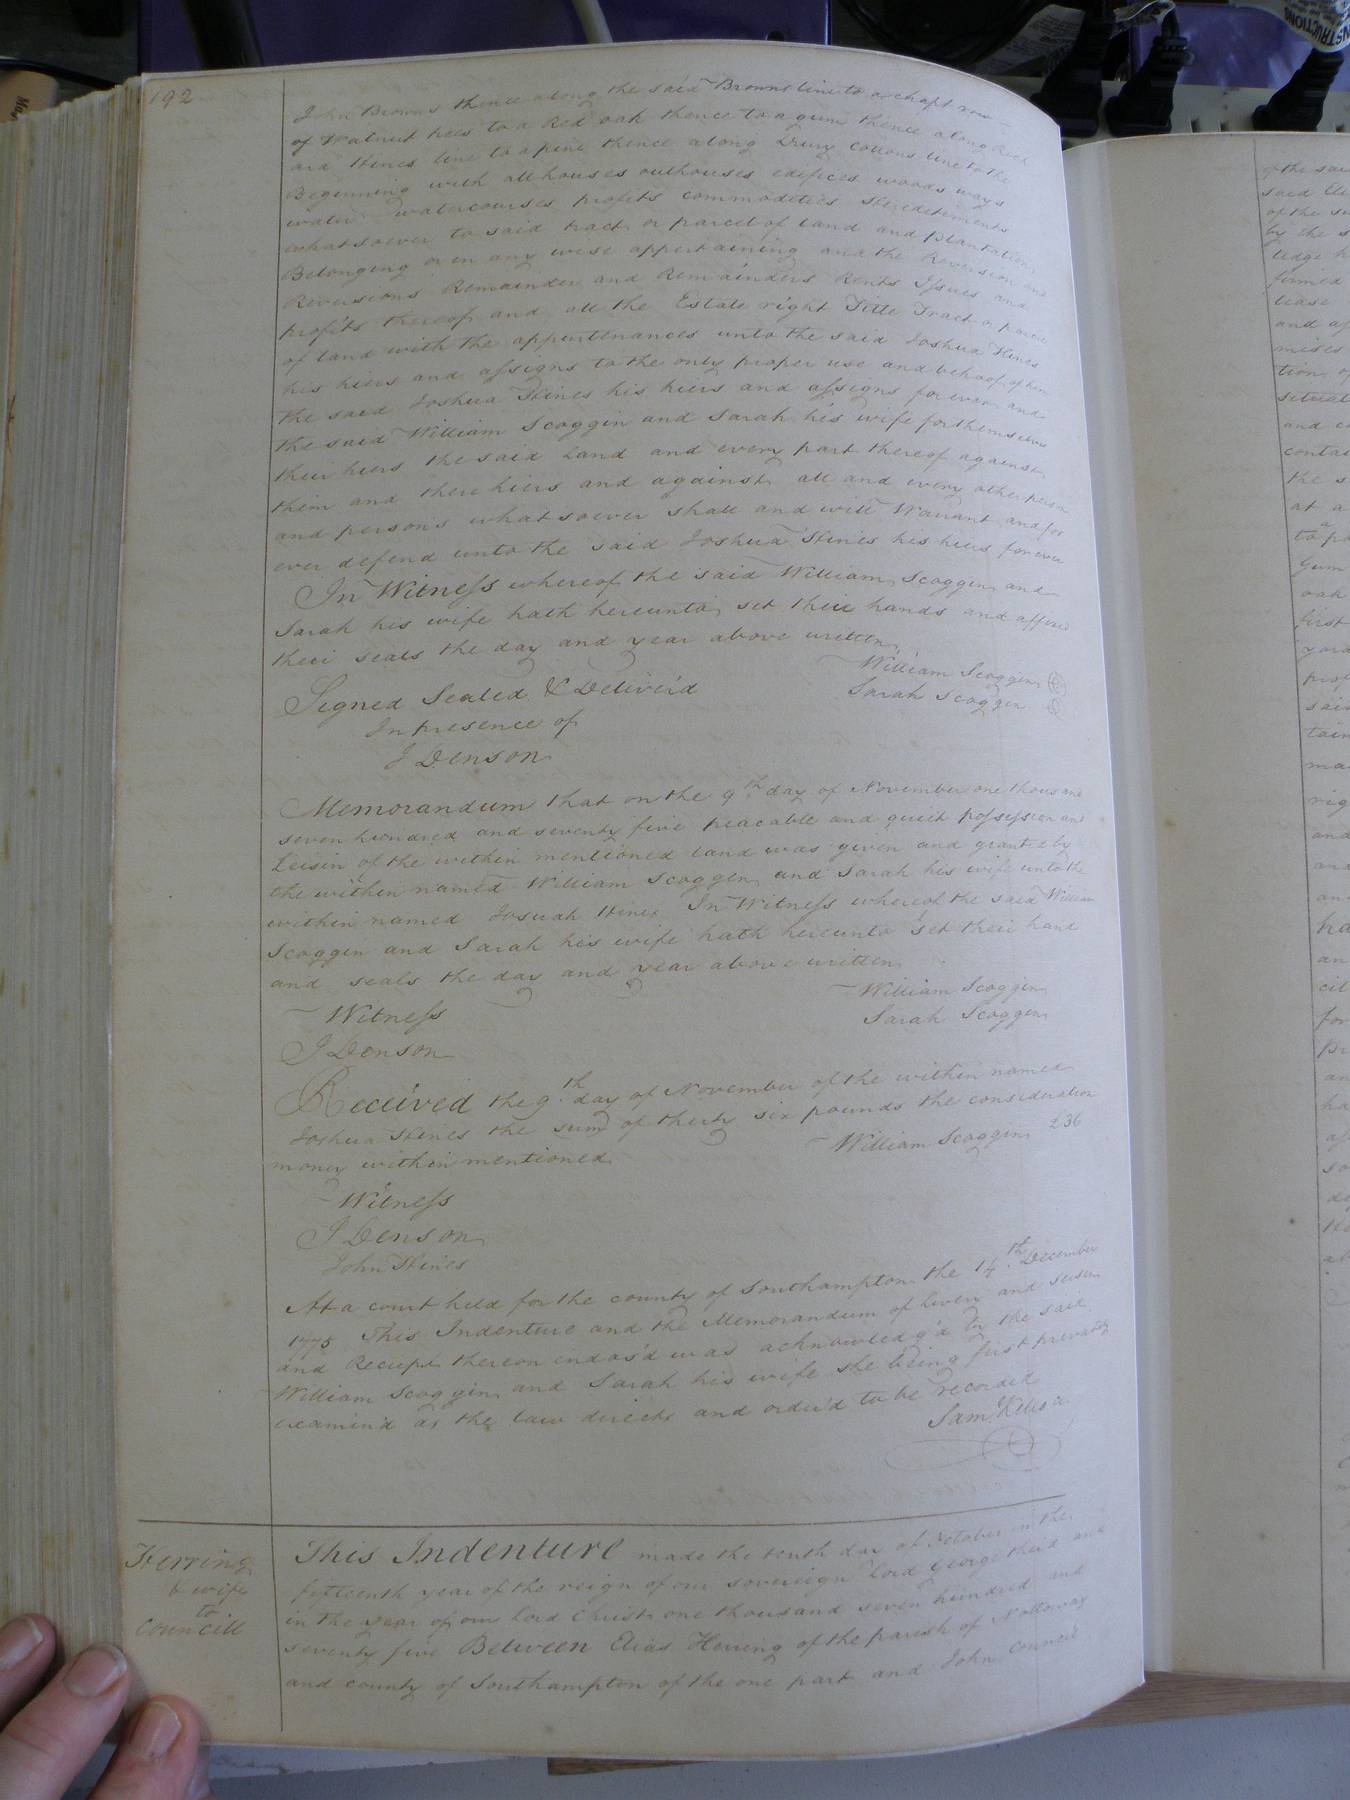 192
John Browns thence along the said Browns line to a chopt row
of Walnut trees to a Red oak thence to a gum thence along Rich
ard Hines line to a pine thence along Drury Cottons line to the
Beginning with all houses outhouses edifices woods ways
water watercourses profits commodities Hereditements
whatsoever to said tract or parcel of Land and plantation
Belonging or in any wise appertaining and the Reversion and
Reversions Remainder and Remainders Rents Issues and
profits thereof and all the Estate right Title Tract or parcel
of land with the appurtenances unto the said Joshua Hines
his hiers and assigns to the only proper use and behoof of him
the said Joshua Hines his hiers and assigns for ever and
the said William Scoggin and Sarah his wife for themselves
their hiers the said Land and every part thereof against
them and there hiers and against all and every other person
and persons whatsoever shall and will Warrant and for
ever defend unto the said Joshua Hines his hiers for ever
In Witness whereof the said William Scoggin and
Sarah his wife hath hereunto set their hands and affixed
their seals the day and year above written
William Scoggin
Signed Sealed & Deliver'd Sarah Scoggin
In presence of
J Denson
Memorandum that on the 9th day of November one thousand
seven hundred and seventy five peacable and quiet possession and
Seisin of the within mentioned land was given and granted by
the within named William Scoggin and Sarah his wife unto the
within named Josuah Hines In Witness whereof the said William
Scoggin and Sarah his wife hath hereunto set their hand
and seals the day and year above written
William Scoggin
Witness Sarah Scoggin
J Denson
Received the 9th day of November of the within named
Joshua Hines the sum of thirty six pounds the consideration
money within mentioned William Scoggin £36
Witness
J Denson
John Hines
At a court held for the county of Southampton the 14th December
1775 This Indenture and the Memorandum of livery and seisin
and Receipt thereon endors'd was acknowledg'd by the said
William Scoggin and Sarah his wife she being first privately
examin'd as the law directs and order'd to be recorded
Herring
& wife
to
Councill
This Indenture made the tenth day of October in the
fifteenth year of the reign of our sovereign lord George third and
in the year of our lord Christ one thousand seven hundred and
seventy five Between Elias Herring of the parish of Nottoway
and county of Southampton of the one part and John Councill